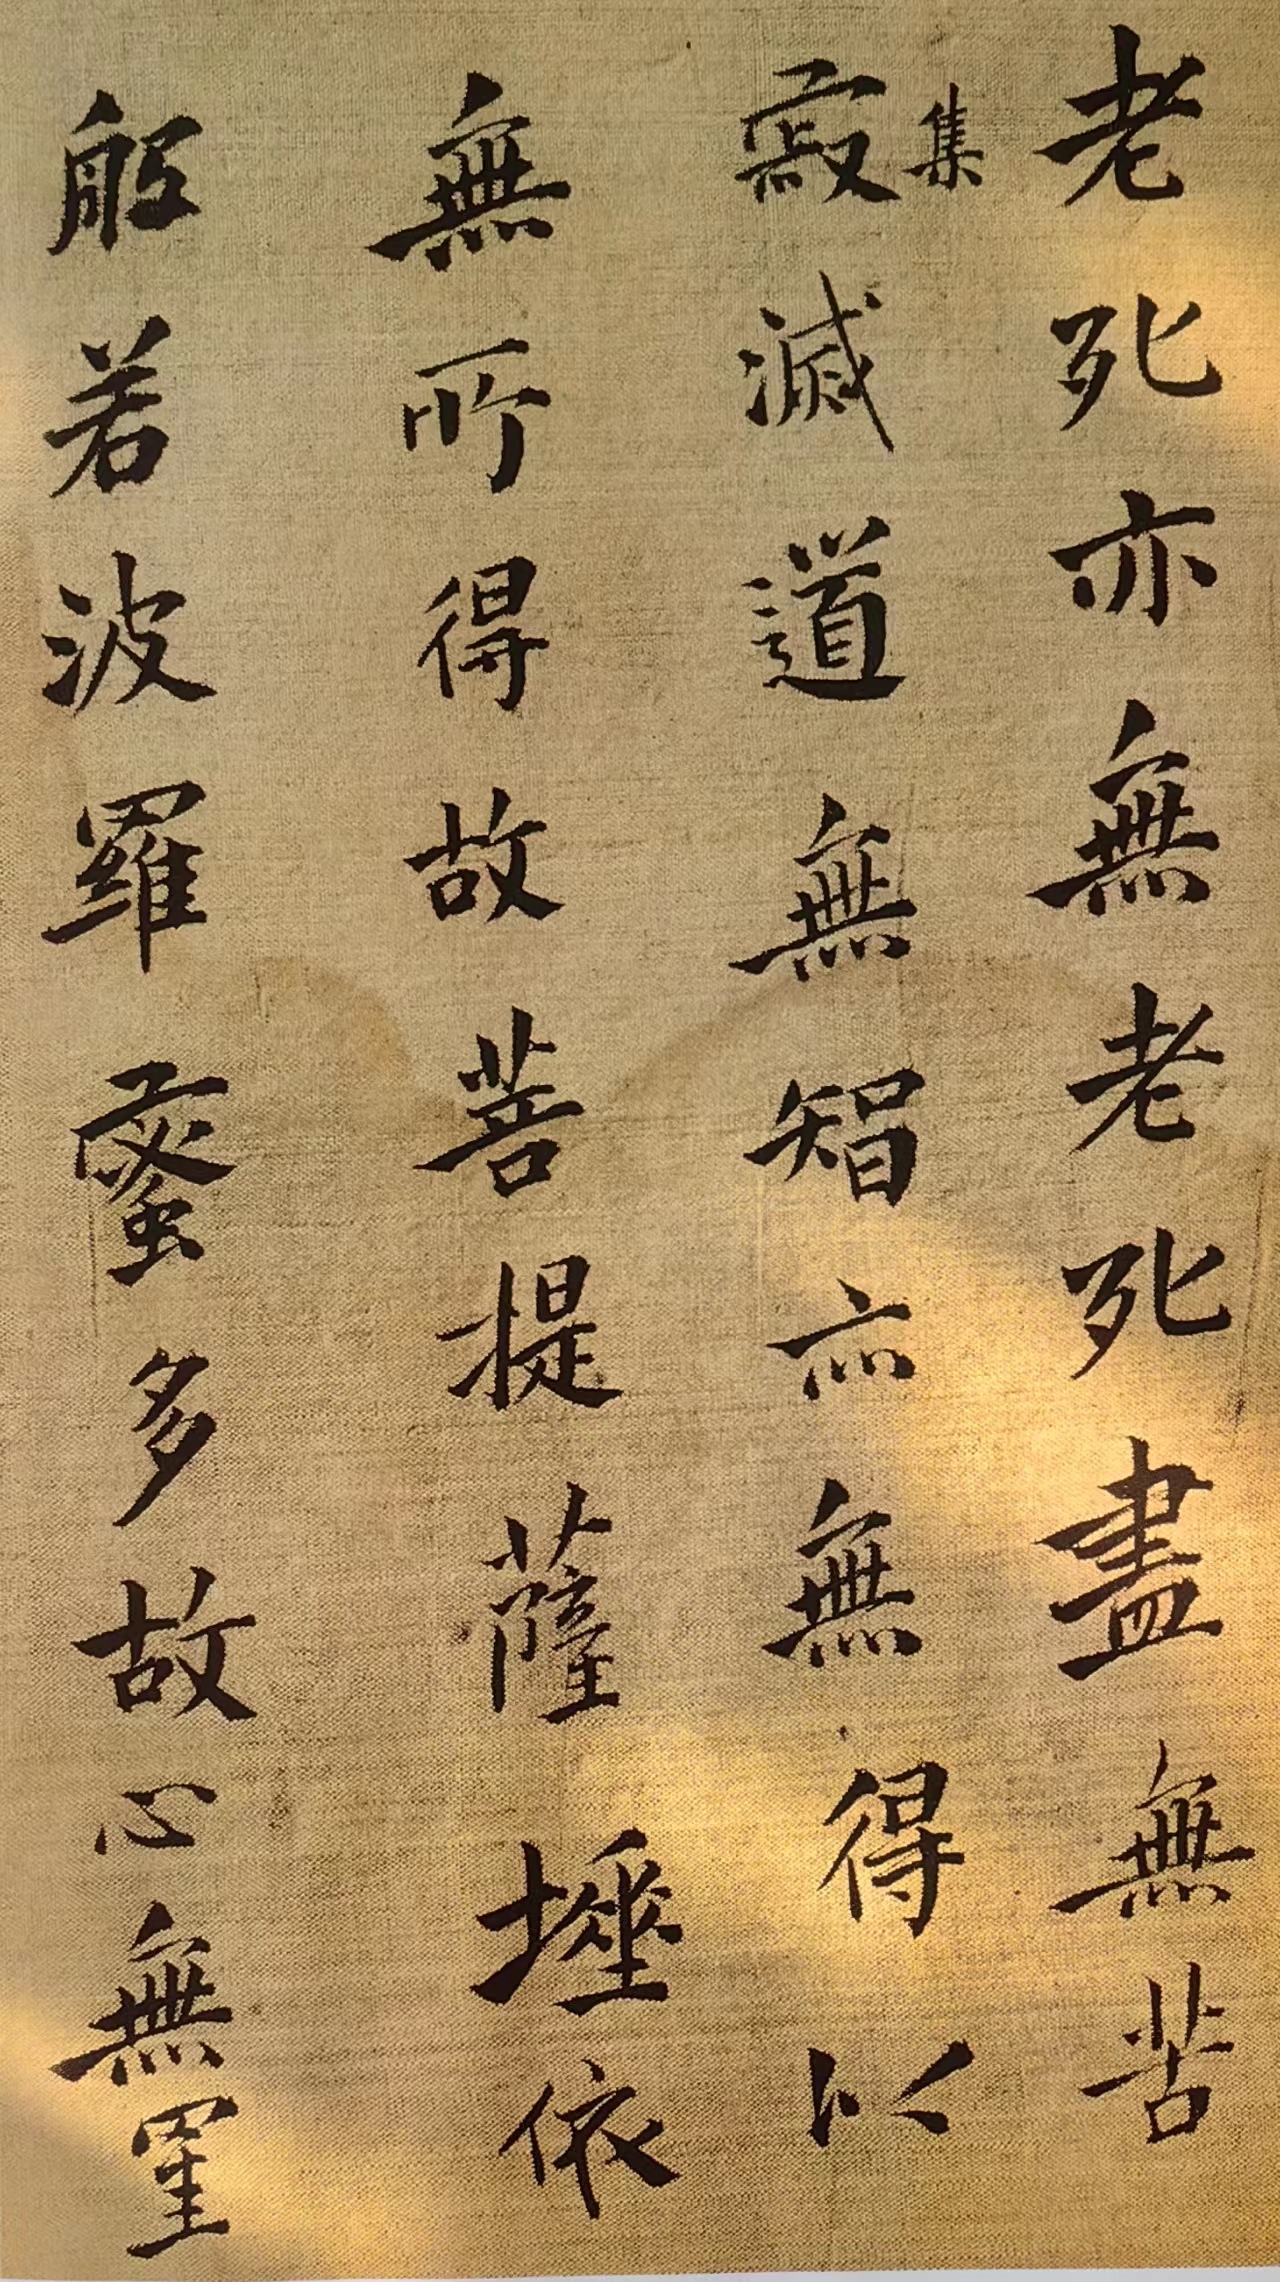 老死亦無老死盡無苦
集
寂滅道無智亦無得以
無所得故菩提薩埵依
般若波羅蜜多故心無罣